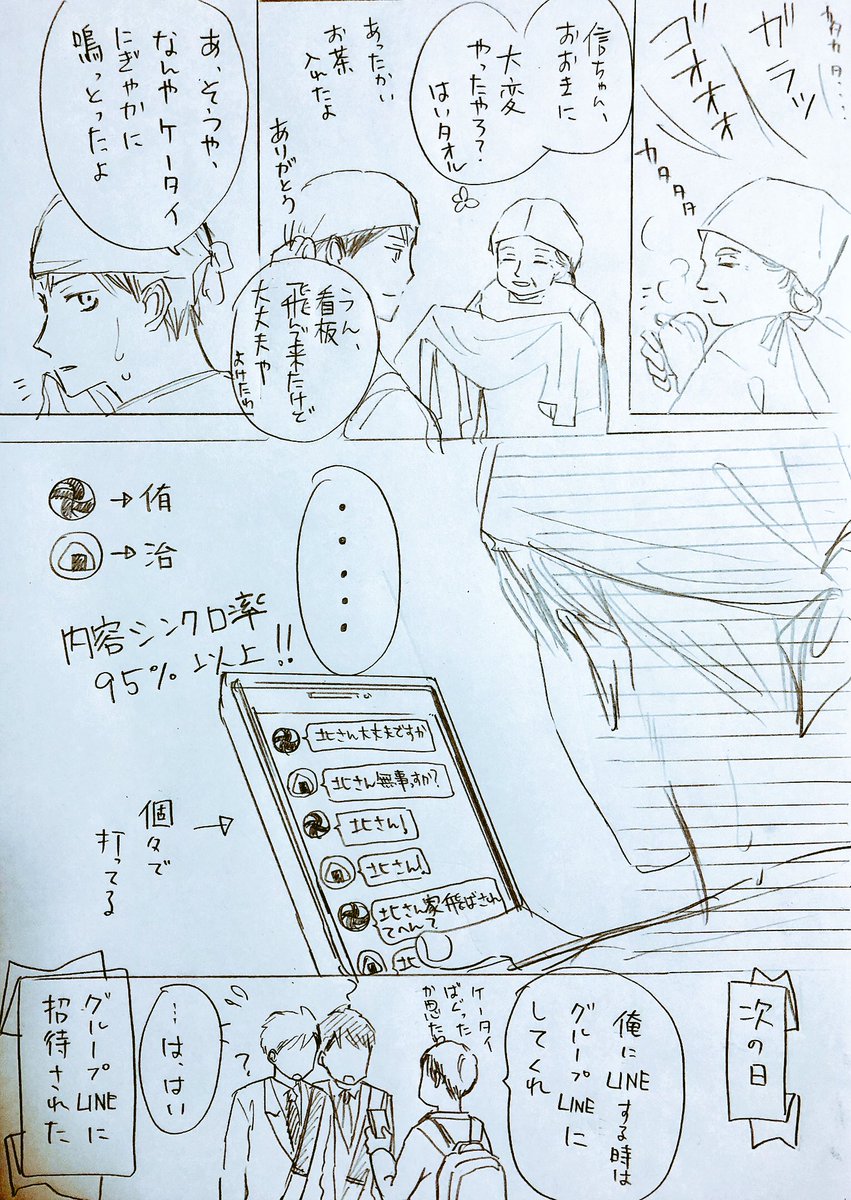 カタカタ…
ガラッ
ゴオオオ
カタタタ
信ちゃん、
おおきに
大変
やったやろ?
はいタオル
あったかい
お茶
入れたよ
ありがとう
うん、
看板
飛んで来たけど
大丈夫や
よけたわ
あ、そうや、
なんやケータイ
にぎやかに
鳴っとったよ
・・・・・
→侑
→治
内容シンクロ率
95%以上!!
個々で
打ってる
→
北さん大丈夫ですか
北さん無事すか?
北さん!
北さん!
北さん家飛ばされ
てへん?
北
次の日
俺にLINEする時は
グループLINEに
してくれ
ケータイ
ばぐった
か思た
?
…は、はい
グループLINEに
招待された